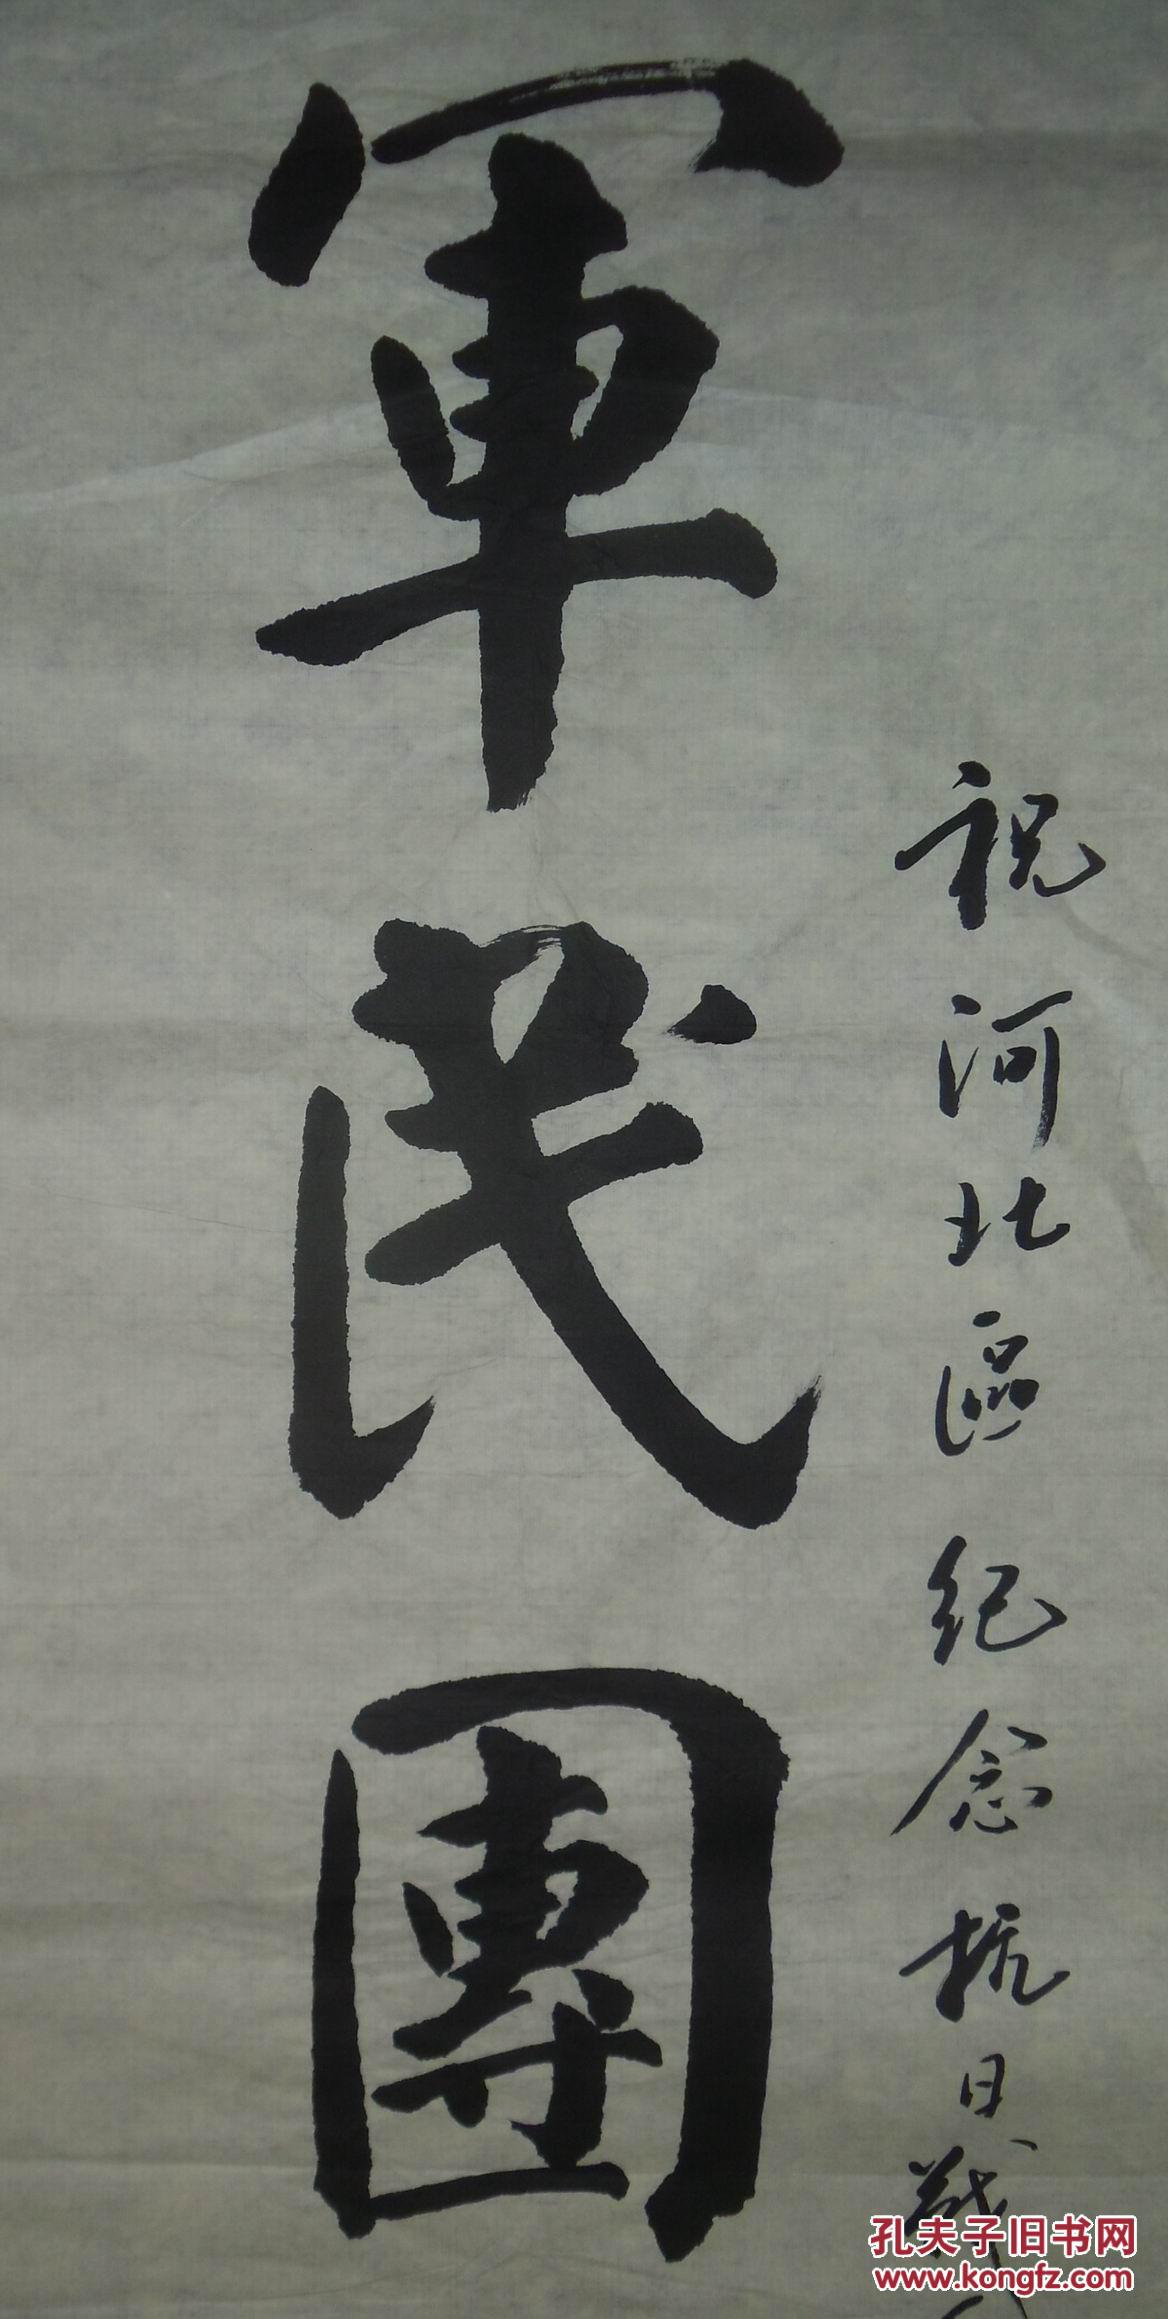 祝河北區纪念抗日战
軍民團
孔夫子旧书网
www.kongfz.com